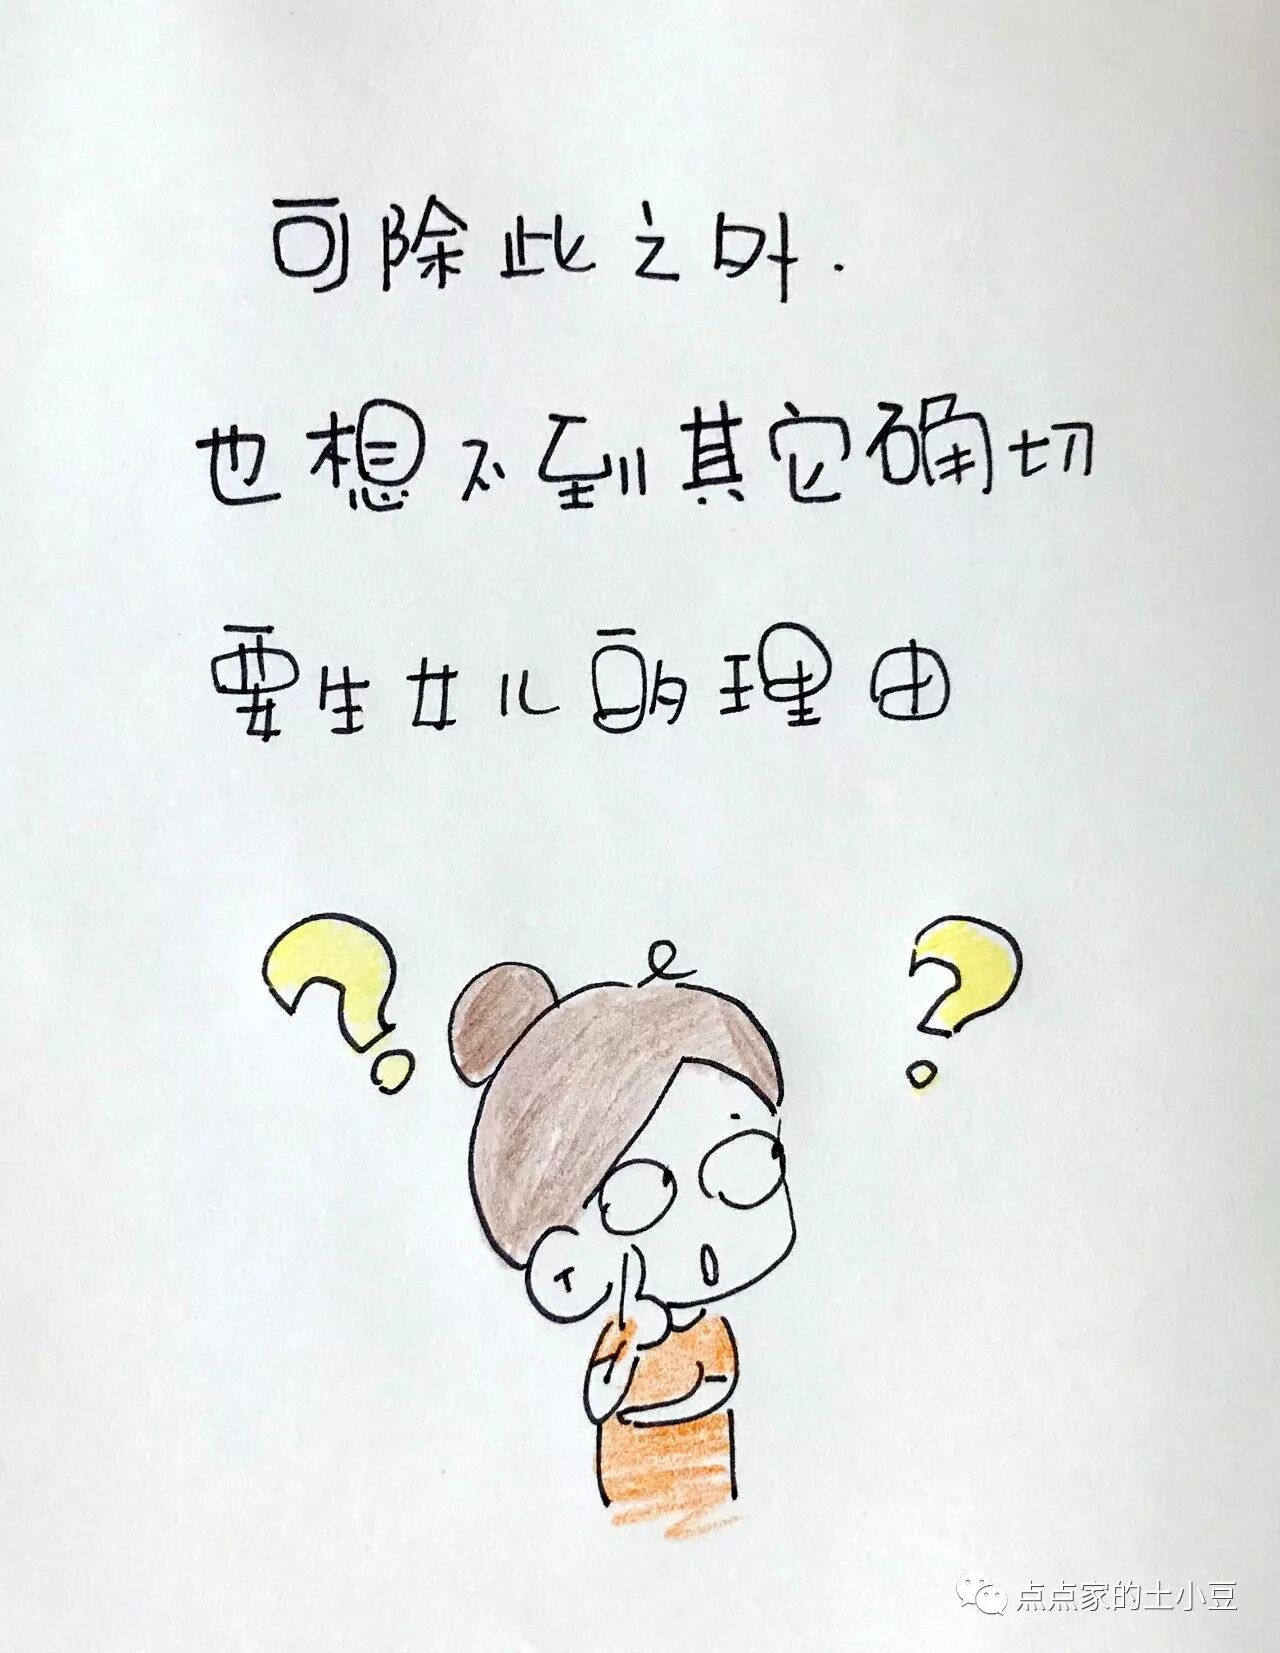 可除此之外.
也想不到其它确切
要生女儿的理由
点点家的土小豆